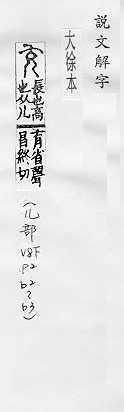 說文解字
大徐本
充長也高也从儿育省聲昌終切
(儿部 V8下 P2 b2~b3)